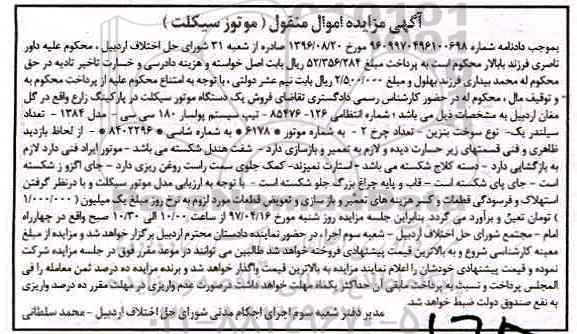 آگهی مزایده اموال منقول ( موتور سیکلت )
بموجب دادنامه شماره ۹۶۰۹۹۷۰۴۹۶۱۰۰۶۹۸ مورخ ۱۳۹۶/۰۸/۲۰ صادره از شعبه ۳۱ شورای حل اختلاف اردبیل ، محکوم علیه داور
ناصری فرزند بابالار محکوم است به پرداخت مبلغ ۵۲/۳۵۶/۲۸۴ ریال بابت اصل خواسته و هزینه دادرسی و خسارت تاخیر تادیه در حق
محکوم له محمد بیداری فرزند بهلول و مبلغ ۲/۵۰۰/۰۰۰ ریال بابت نیم عشر دولتی ، با توجه به امتناع محکوم علیه از پرداخت محکوم به
و توقیف مال ، محکوم له در حضور کارشناس رسمی دادگستری تقاضای فروش یک دستگاه موتور سیکلت در پارکینگ زارع واقع در گل
مغان اردبیل به مشخصات ذیل می باشد ؛ شماره انتظامی ۱۲۶- ۸۵۴۷۶ - تیپ سیستم پولسار ۱۸۰ سی سی - مدل ۱۳۸۴ - تعداد
سیلندر یک- نوع سوخت بنزین - تعداد چرخ ۲ - به شماره موتور * ۶۱۷۸ * به شماره شاسی * ۸۴۰۲۲۹۶ * - از لحاظ بازدید
ظاهری و فنی قسمتهای زیر حسارت دیده و لازم به تعمیر و بازسازی دارد- شفت هندل شکسته می باشد - موتور ایراد فنی دارد لازم
به بازگشایی دارد - دسته کلاج شکسته می باشد - استارت نمیزند- کمک جلوی سمت راست روغن ریزی دارد - جای اگزوز شکسته
است - جای پای شکسته است - قاب و پایه چراغ بزرگ جلو شکسته است - با توجه به ارزیابی مدل موتور سیکلت و با درنظر گرفتن
استهلاک و فرسودگی قطعات و کسر هزینه های تعمیر و باز سازی و تعویض قطعات مورد لزوم به نرخ روز مبلغ یک میلیون ( ۱/۰۰۰/۰۰۰
) تومان تعین و برآورد می گردد. بنابراین جلسه مزایده روز شنبه مورخ ۹۷/۰۴/۱۶ از ساعت ۱۰/۰۰ الی ۱۰/۳۰ صبح واقع در چهارراه
امام - مجتمع شورای حل اختلاف اردبیل - شعبه سوم اجراء در حضور نماینده دادستان محترم اردبیل برگزار خواهد شد و مزایده از مبلغ
معینه کارشناسی شروع و به بالاترین قیمت پیشنهادی فروخته خواهد شد طالبین می توانند در موعد مقرر فوق در جلسه مزایده شرکت
نموده و قیمت پیشنهادی خودشان را اعلام نمایند مزایده به بالاترین قیمت واگذار خواهد شد و برنده مزایده ده درصد ثمن معامله را فی
المجلس پرداخت و نسبت به پرداخت مابقی آن حداکثر یکماه مهلت خواهد داشت درصورت عدم واریزی در مهلت مقرر ده درصد واریزی
به نفع صندوق دولت ضبط خواهد شد.
مدیر دفتر شعبه سوم اجرای احکام مدنی شورای حل اختلاف اردبیل - محمد سلطانی